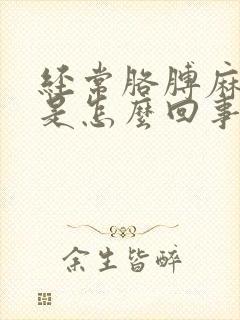 经常胳膊麻
是怎麼回事
余生皆醉